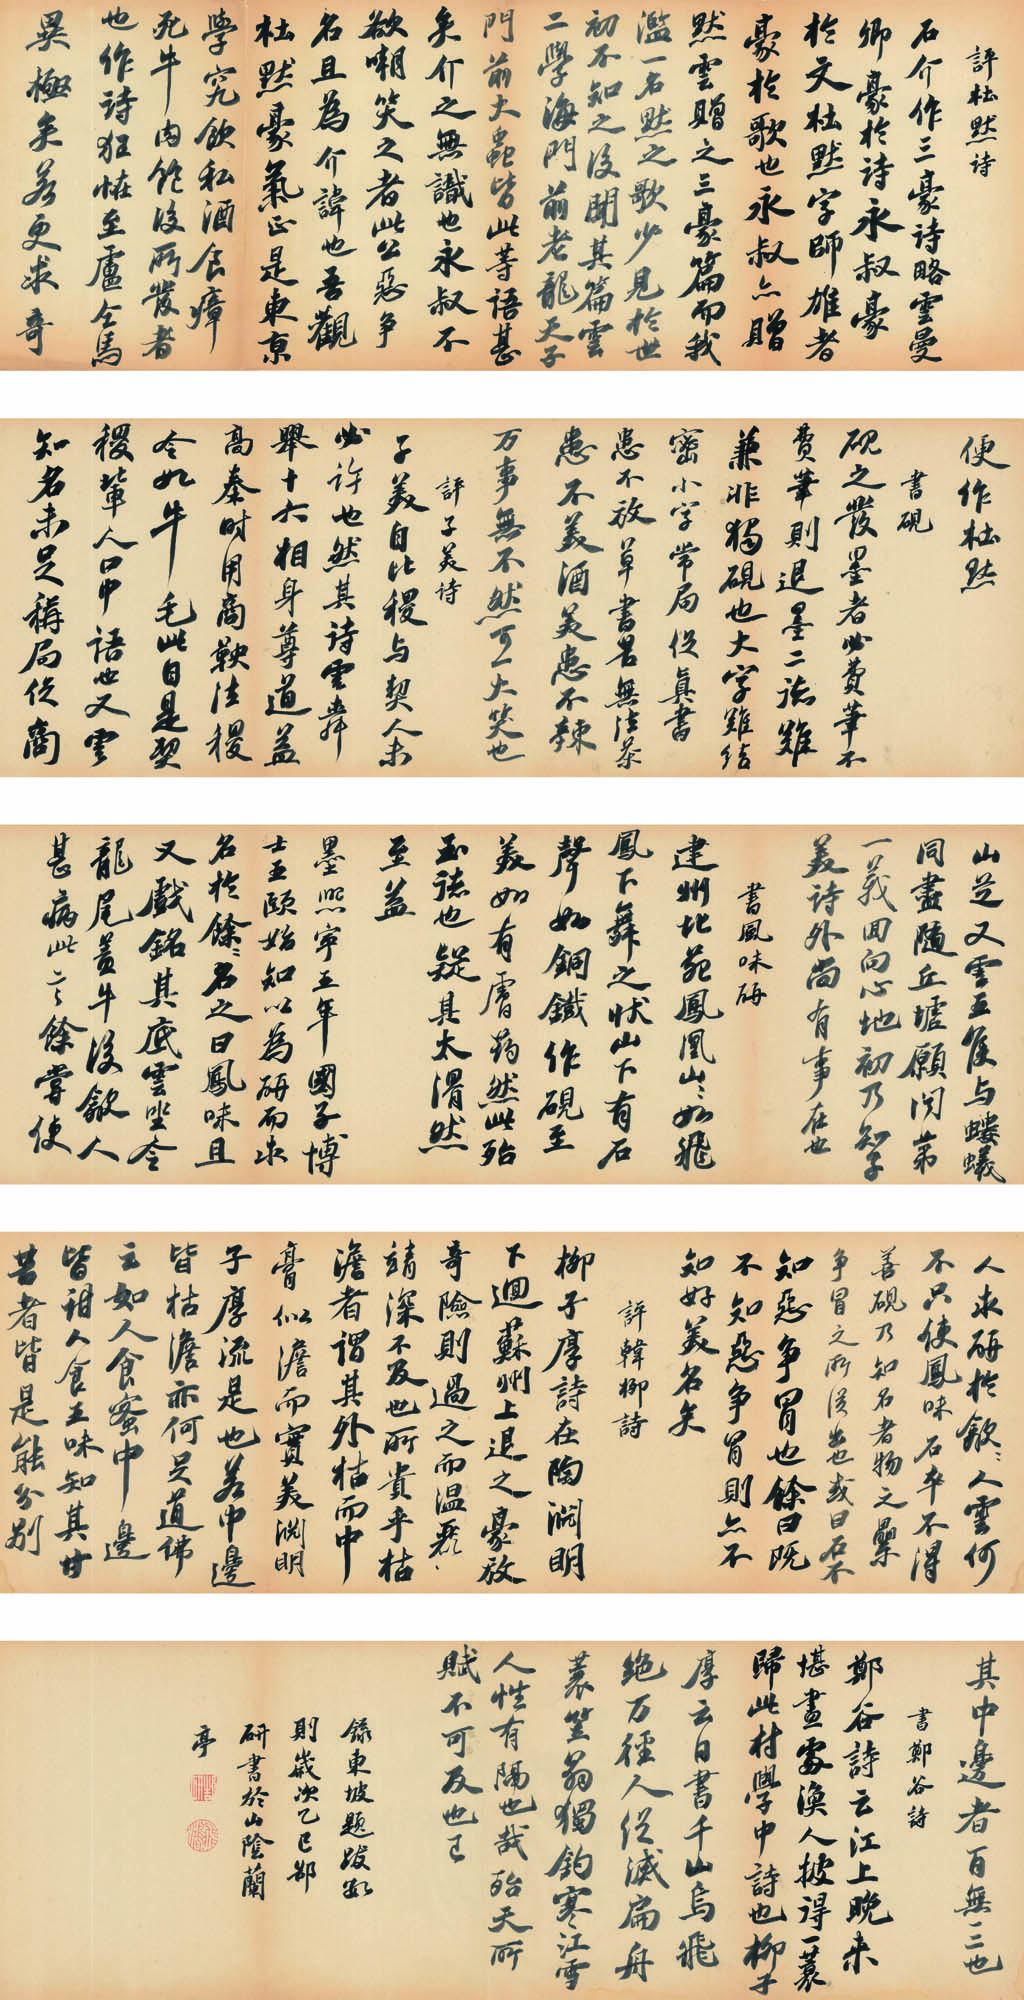 評杜默詩
石介作三豪詩略雲曼
卿豪於詩永叔豪
於文杜默字師雄者
豪於歌也永叔亦贈
默雲贈之三豪篇而我
濫一名默之歌少見於世
初不知之後聞其篇雲
二學海門前老龍天子
門前大蟲皆此等語甚
矣介之無識也永叔不
欲嘲笑之者此公惡爭
名且為介諱也吾觀
杜默豪氣正是東京
學究飲私酒食瘴
死牛肉飽後所發者
也作詩狂怪至盧仝馬
異極矣若更求奇
便作杜默
書硯
硯之發墨者必費筆不
費筆則退墨二德難
兼非獨硯也大字難結
密小字常局促真書
患不放草書苦無法茶
患不美酒美患不辣
万事無不然可一大笑也
評子美詩
子美自比稷与契人未
必許也然其詩雲舜
舉十六相身尊道益
高秦時用商鞅法稷
令如牛毛此自是契
稷輩人口中語也又雲
知名未足稱局促商
山芝又雲王侯与螻蟻
同盡隨丘墟願聞第
一義回向心地初乃知子
美詩外尚有事在也
書鳳味研
建州北苑鳳凰山山如飛
鳳下舞之狀山下有石
聲如銅鐵作硯至
美如有膚筠然此殆
玉德也疑其太滑然
至益
墨熙寧五年國子博
士王頤始知以為研而求
名於餘餘名之曰鳳味且
又戲銘其底雲坐令
龍尾羞牛後歙人
甚病此言餘嘗使
人求研於歙歙人雲何
不只使鳳味石卒不得
善硯乃知名者物之累
爭冒之所從出也或曰石不
知惡爭冒也餘曰既
不知惡爭冒則亦不
知好美名矣
評韓柳詩
柳子厚詩在陶淵明
下迴蘇州上退之豪放
奇險則過之而温麗
靖深不及也所貴乎枯
澹者謂其外枯而中
膏似澹而實美淵明
子厚流是也若中邊
皆枯澹亦何足道佛
云如人食蜜中邊
皆甜人食五味知其甘
苦者皆是能分別
其中邊者百無一二也
書鄭谷詩
鄭谷詩云江上晚来
堪畫處漁人披得一蓑
歸此村學中詩也柳子
厚云日書千山鳥飛
绝万徑人從滅扁舟
蓑笠翁獨釣寒江雪
人性有隔也哉殆天所
賦不可及也已
錄東坡題跋數
則歲次乙巳鄒
研書於山陰蘭
亭